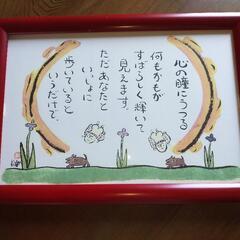 心の瞳にうつる
何もかもが
すばらしく輝いて
見えます。
ただあなたと
いっしょに
歩いていると
いうだけで。